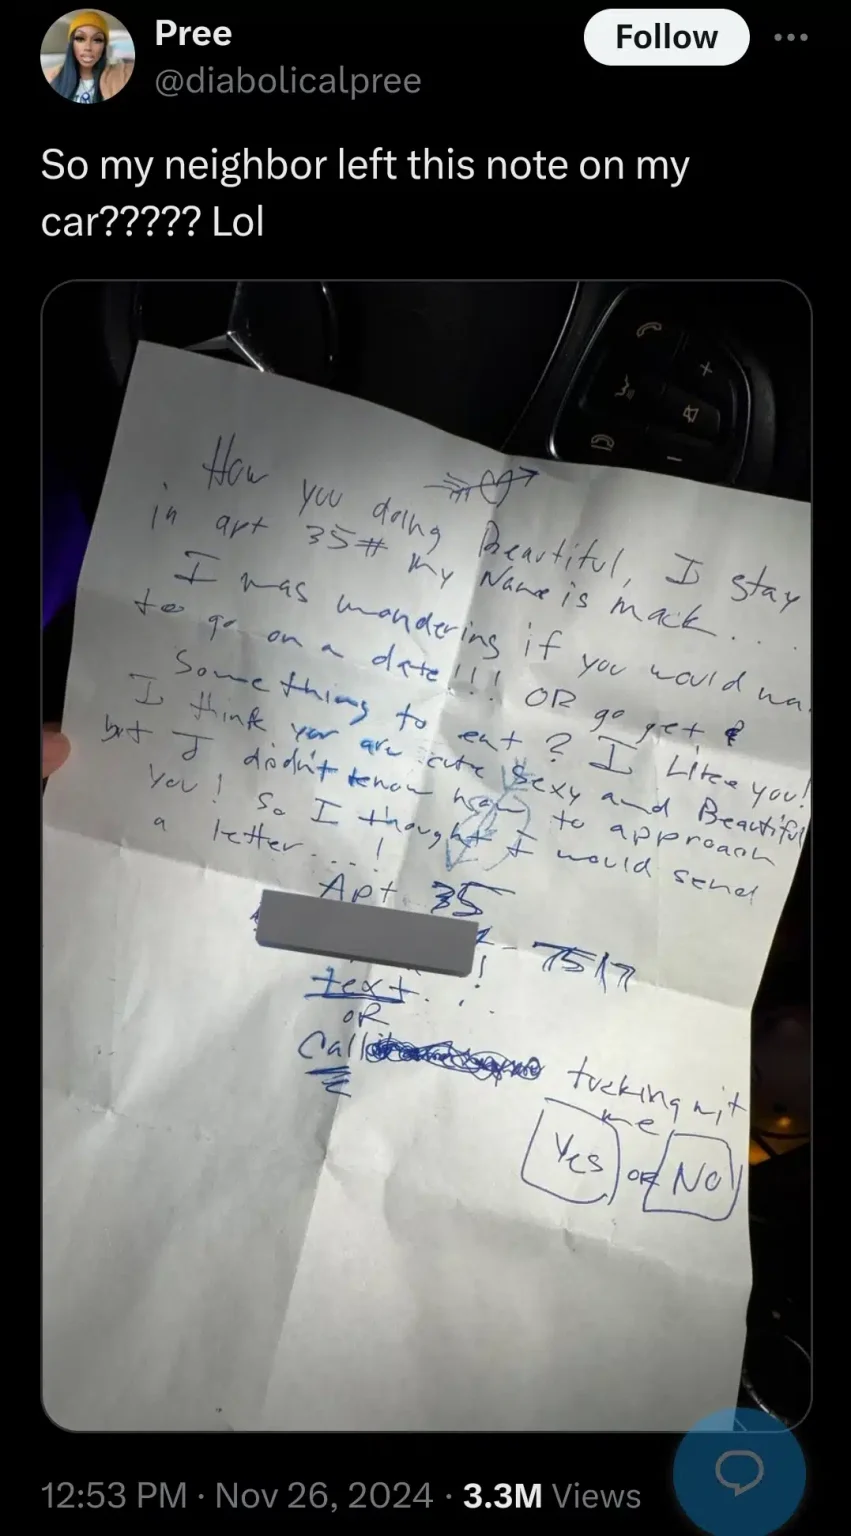 Pree
Follow
@diabolicalpree
So my neighbor left this note on my
car????? Lol
How you doing Beautiful, I stay
in apt 35# my Name is mack...
I was wondering if you would wa
to go on a date!!! OR go get
Something to eat? I Like you!
I think you are cute Sexy and Beautiful
but I didn't know how to approach
you! So I thought I would send
a letter....!
Apt 35
- 7517
!
text...
OR
Call
fucking wit
me
Yes OR NO
12:53 PM · Nov 26, 2024 · 3.3M Views